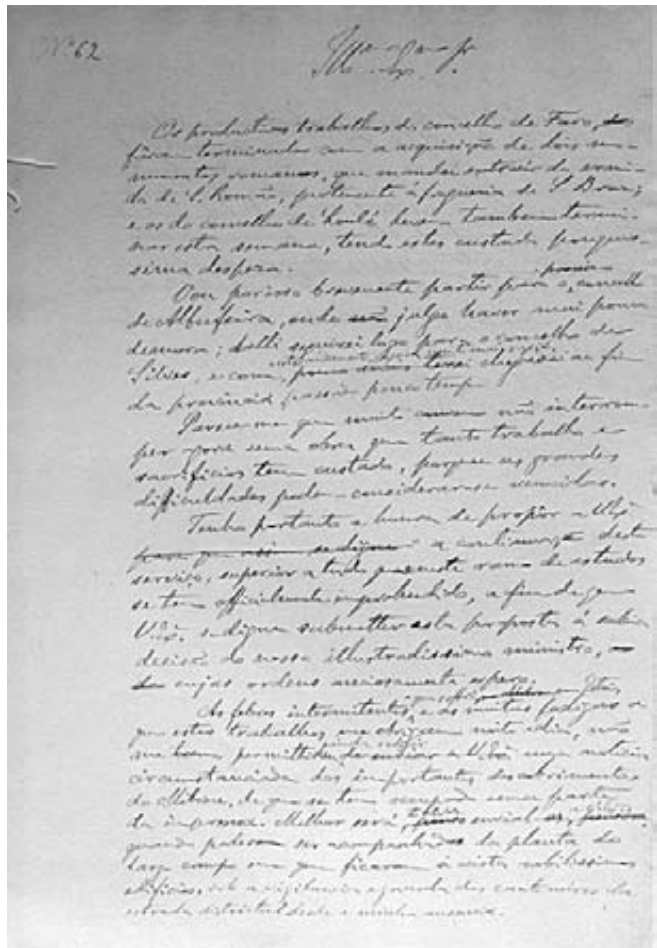 Nº 62
Os productivos trabalhos do concelho de Faro,
foram terminados com a acquisição de dois mo-
numentos romanos, que mandei extrair da ermi-
da de S. Romão, pertencente á freguezia de S. Braz;
e os do concelho de Loulé devem tambem termi-
nar esta semana, tendo estes custado pequenis-
sima despeza.
Vou por isso brevemente partir para o concelho
de Albufeira, onde julgo haver mui pouca
demora; d'alli seguirei logo para o concelho de
Silves, e como
terei chegado ao fim
da provincia, passado pouco tempo.
Parece-me que muito não interrom-
per agora uma obra que tanto trabalho e
sacrificios tem custado, porque as grandes
difficuldades podem considerar-se vencidas.
Tenho portanto a honra de propôr a V. Exª
a continuação deste
serviço, superior a tudo que neste ramo de estudos
se tem officialmente emprehendido, a fim de que
V. Exª se digne submetter esta proposta á sabia
decisão do nosso illustradissimo ministro,
cujas ordens anciosamente espero.
As febres intermitentes, e as muitas fadigas a
que estes trabalhos me obrigam noite e dia, não
me permittido enviar a V. Exª uma noticia
circumstanciada dos importantes descobrimentos
do Milreu, de que se tem occupado uma parte
da imprensa. Melhor será envial-as,
quando poderem ser acompanhadas da planta do
largo campo em que ficaram á vista nobilissimos
edificios, sob a vigilancia e guarda dos cantoneiros da
estrada districtal desde a minha ausencia.